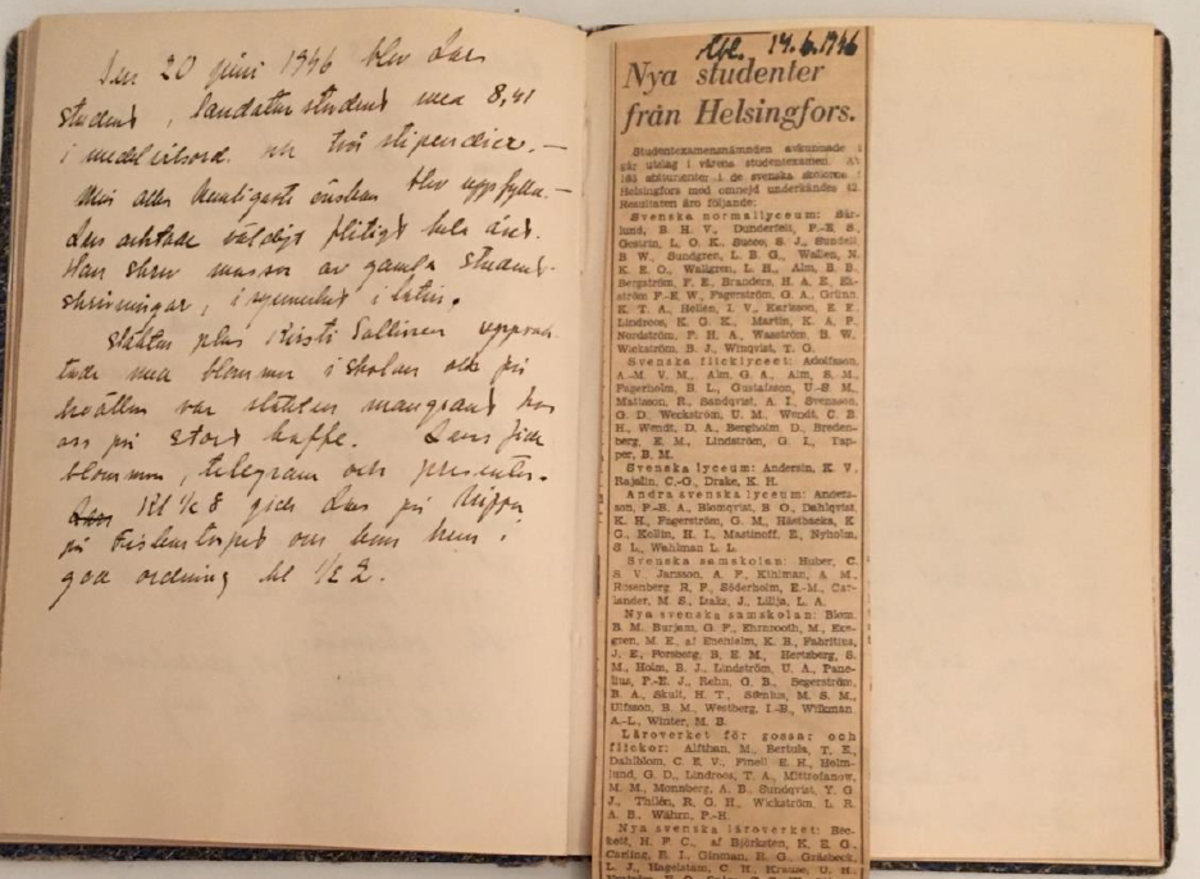 Den 20 juni 1946 blev Lars
student, laudaturstudent med 8,41
i medelvitsord och två stipendier. —
Min allra hemligaste önskan blev uppfylld. —
Lars arbetade väldigt flitigt hela året.
Han skrev massor av gamla student-
skrivningar, i synnerhet i latin.
Släkten plus Kirsti Sallinen uppvak-
tade med blommor i skolan och på
kvällen var släkten mangrant hos
oss på stort kaffe. Lars fick
blommor, telegram och presenter.
Kl 1/2 8 gick Lars på
på Fiskartorpet och kom hem i
god ordning kl 1/2 2.
Hbl. 14.6.1946
Nya studenter
från Helsingfors.
Studentexamensnämnden avkunnade i
går utslag i vårens studentexamen. Av
163 abiturienter i de svenska skolorna i
Helsingfors med omnejd underkändes 12.
Resultaten äro följande:
Svenska normallyceum: Bär-
lund, B. H. V., Dunderfelt, P.-E. S.,
Gestrin, L. O. K., Succo, S. J., Sundell,
B. W., Sundgren, L. B. G., Wallen, N.
K. E. O., Wallgren, L. H., Alm, B. B.,
Bergström, F. E., Branders, H. A. E., Ek-
ström F.-E. W., Fagerström, G. A., Grünn,
K. T. A., Hellen, I. V., Karlsson, E. F.,
Lindroos, K. G. K., Martin, K. A. P.,
Nordström, F. H. A., Wasström, B. W.,
Wickström, B. J., Winqvist, T. G.
Svenska flicklyceet: Adolfsson,
A.-M. V. M., Alm, G. A., Alm, S. M.,
Fagerholm, B. L., Gustafsson, U.-S. M.,
Mattsson, R., Sandqvist, A. I., Svensson,
G. D., Weckström, U. M., Wendt, C. B.
H., Wendt, D. A., Bergholm, D., Breden-
berg, E. M., Lindström, G. I., Tap-
per, B. M.
Svenska lyceum: Andersin, K. V.,
Rajalin, C.-G., Drake, K. H.
Andra svenska lyceum: Anders-
son, P.-B. A., Blomqvist, B. O., Dahlqvist,
K. H., Fagerström, G. M., Hästbacka, K.
G., Kollin, H. I., Mastinoff, E., Nyholm,
S. L., Wahlman L. L.
Svenska samskolan: Huber, C.
S. V., Jansson, A. F., Kihlman, A. M.,
Rosenberg, R. F., Söderholm, E.-M., Car-
lander, M. S., Izaks, J., Lillja, L. A.
Nya svenska samskolan: Blom,
B. M., Burjam, G. F., Ehrnrooth, M., Eke-
gren, M. E., af Enehielm, K. B., Fabritius,
J. E., Forsberg, B. E. M., Hertzberg, S.
M., Holm, B. J., Lindström, U. A., Pane-
lius, P.-E. J., Rehn, G. B., Segerström,
B. A., Skult, H. T., Stenius, M. S. M.,
Ulfsson, B. M., Westberg, I.-B., Wilkman
A.-L., Winter, M. B.
Läroverket för gossar och
flickor: Alfthan, M., Bertula, T. E.,
Dahlblom, C. E. V., Finell E. H., Holm-
lund, G. D., Lindroos, T. A., Mittrofanow,
M. M., Monnberg, A. B., Sundqvist, Y. G.
J., Thilén, R. G. H., Wickström, L. R.
A. B., Währn, P.-H.
Nya svenska läroverket: Bec-
kell, H. F. C., af Björksten, K. E. G.,
Carling, R. I., Ginman, R. G., Gräsbeck,
L. J., Hagelstam, C. H., Krause, U. H.